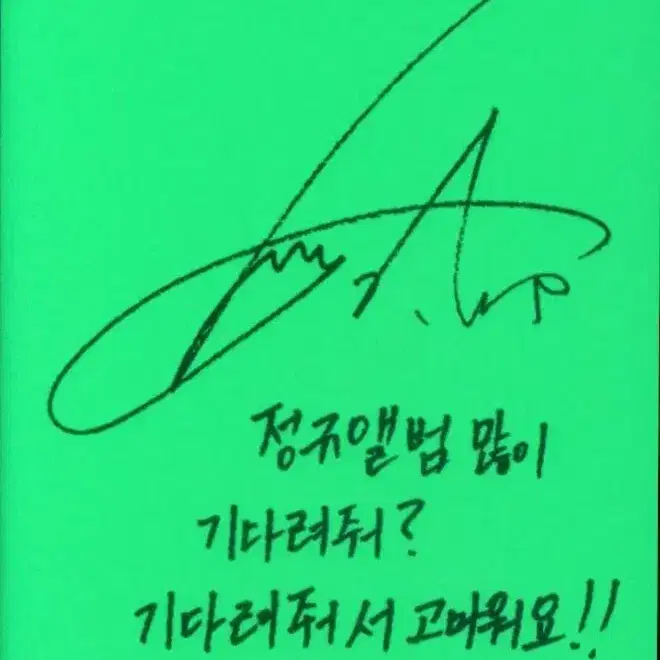 정규앨범 많이
기다려줘?
기다려줘서 고마워요!!